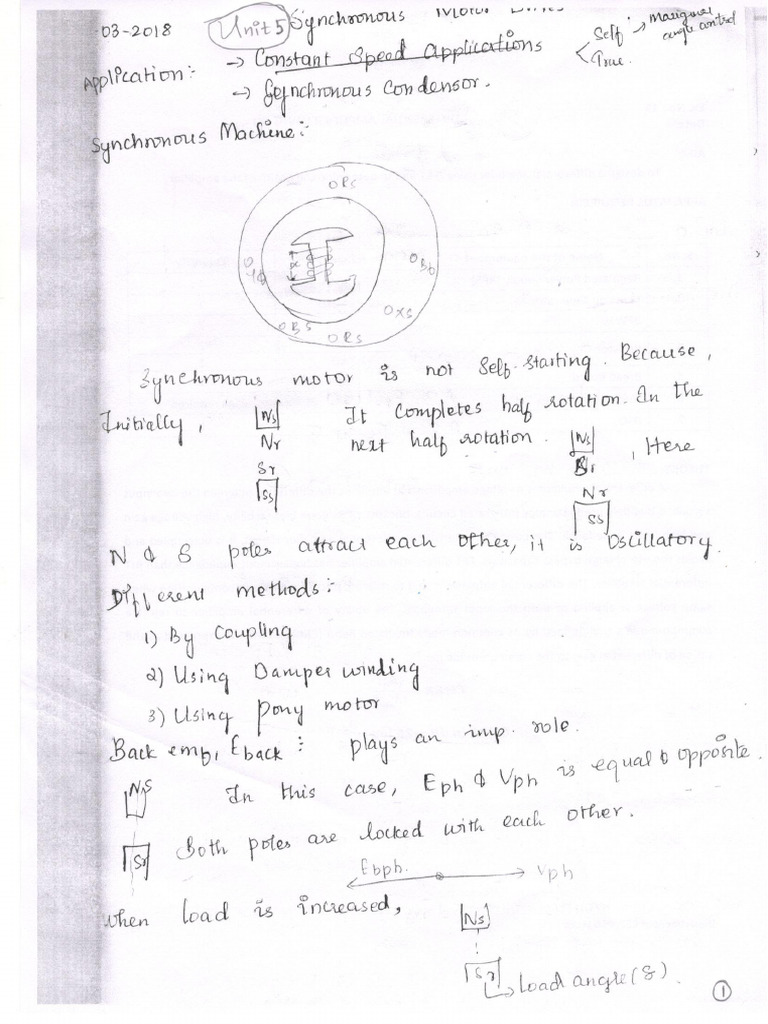 -03-2018 Unit 5 Synchronous Motor Drives
Self → Marginal angle control
True.
Application:- → Constant Speed Applications
→ Synchronous Condensor.
Synchronous Machine:-
O RS
O Bb
O YΦ
O XS
O BS
O RS
Synchronous motor is not Self-Starting. Because,
Initially, Ns It completes half rotation. In the
Nr next half rotation. Ns , Here
Sr Sr
Ss Nr
Ss
N & S poles attract each other, it is oscillatory.
Different methods:-
1) By coupling
2) Using Damper winding
3) Using pony motor
Back emf, Eback : plays an imp. role.
Ns In this case, Eph & Vph is equal & opposite.
Sr Both poles are locked with each other.
Ebph. Vph
When load is increased, Ns
Sr
Load angle (δ).
1